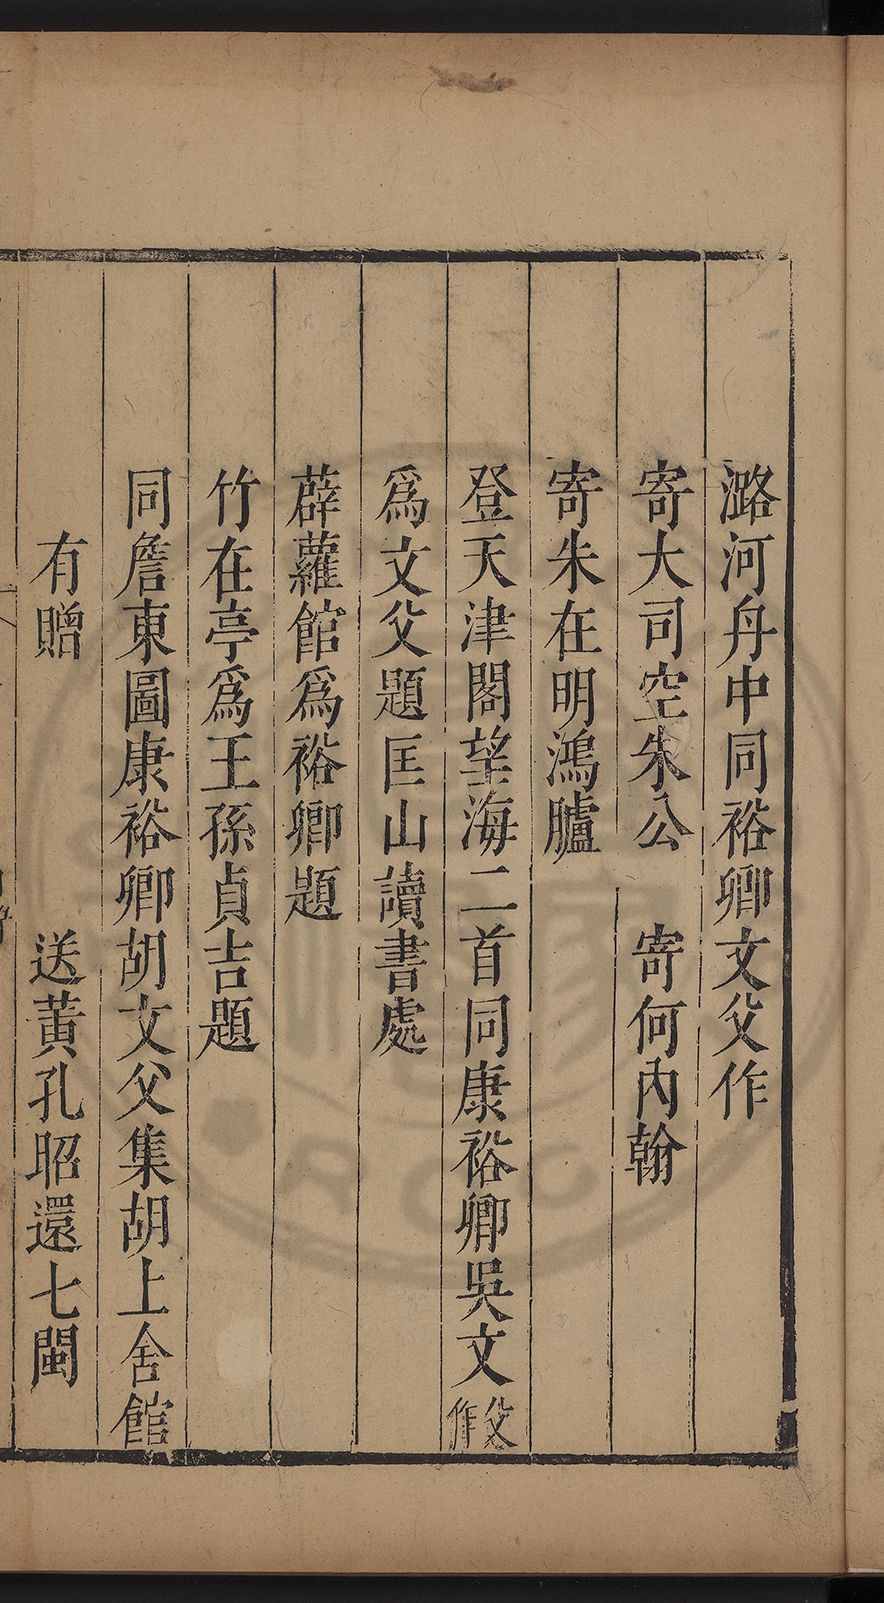 潞河舟中同裕卿文父作
寄大司空朱公　寄何內翰
寄朱在明鴻臚
登天津閣望海二首同康裕卿吳文父作
為文父題匡山讀書處
薜蘿館為裕卿題
竹在亭為王孫貞吉題
同詹東圖康裕卿胡文父集胡上舍館
有贈　送黃孔昭還七閩